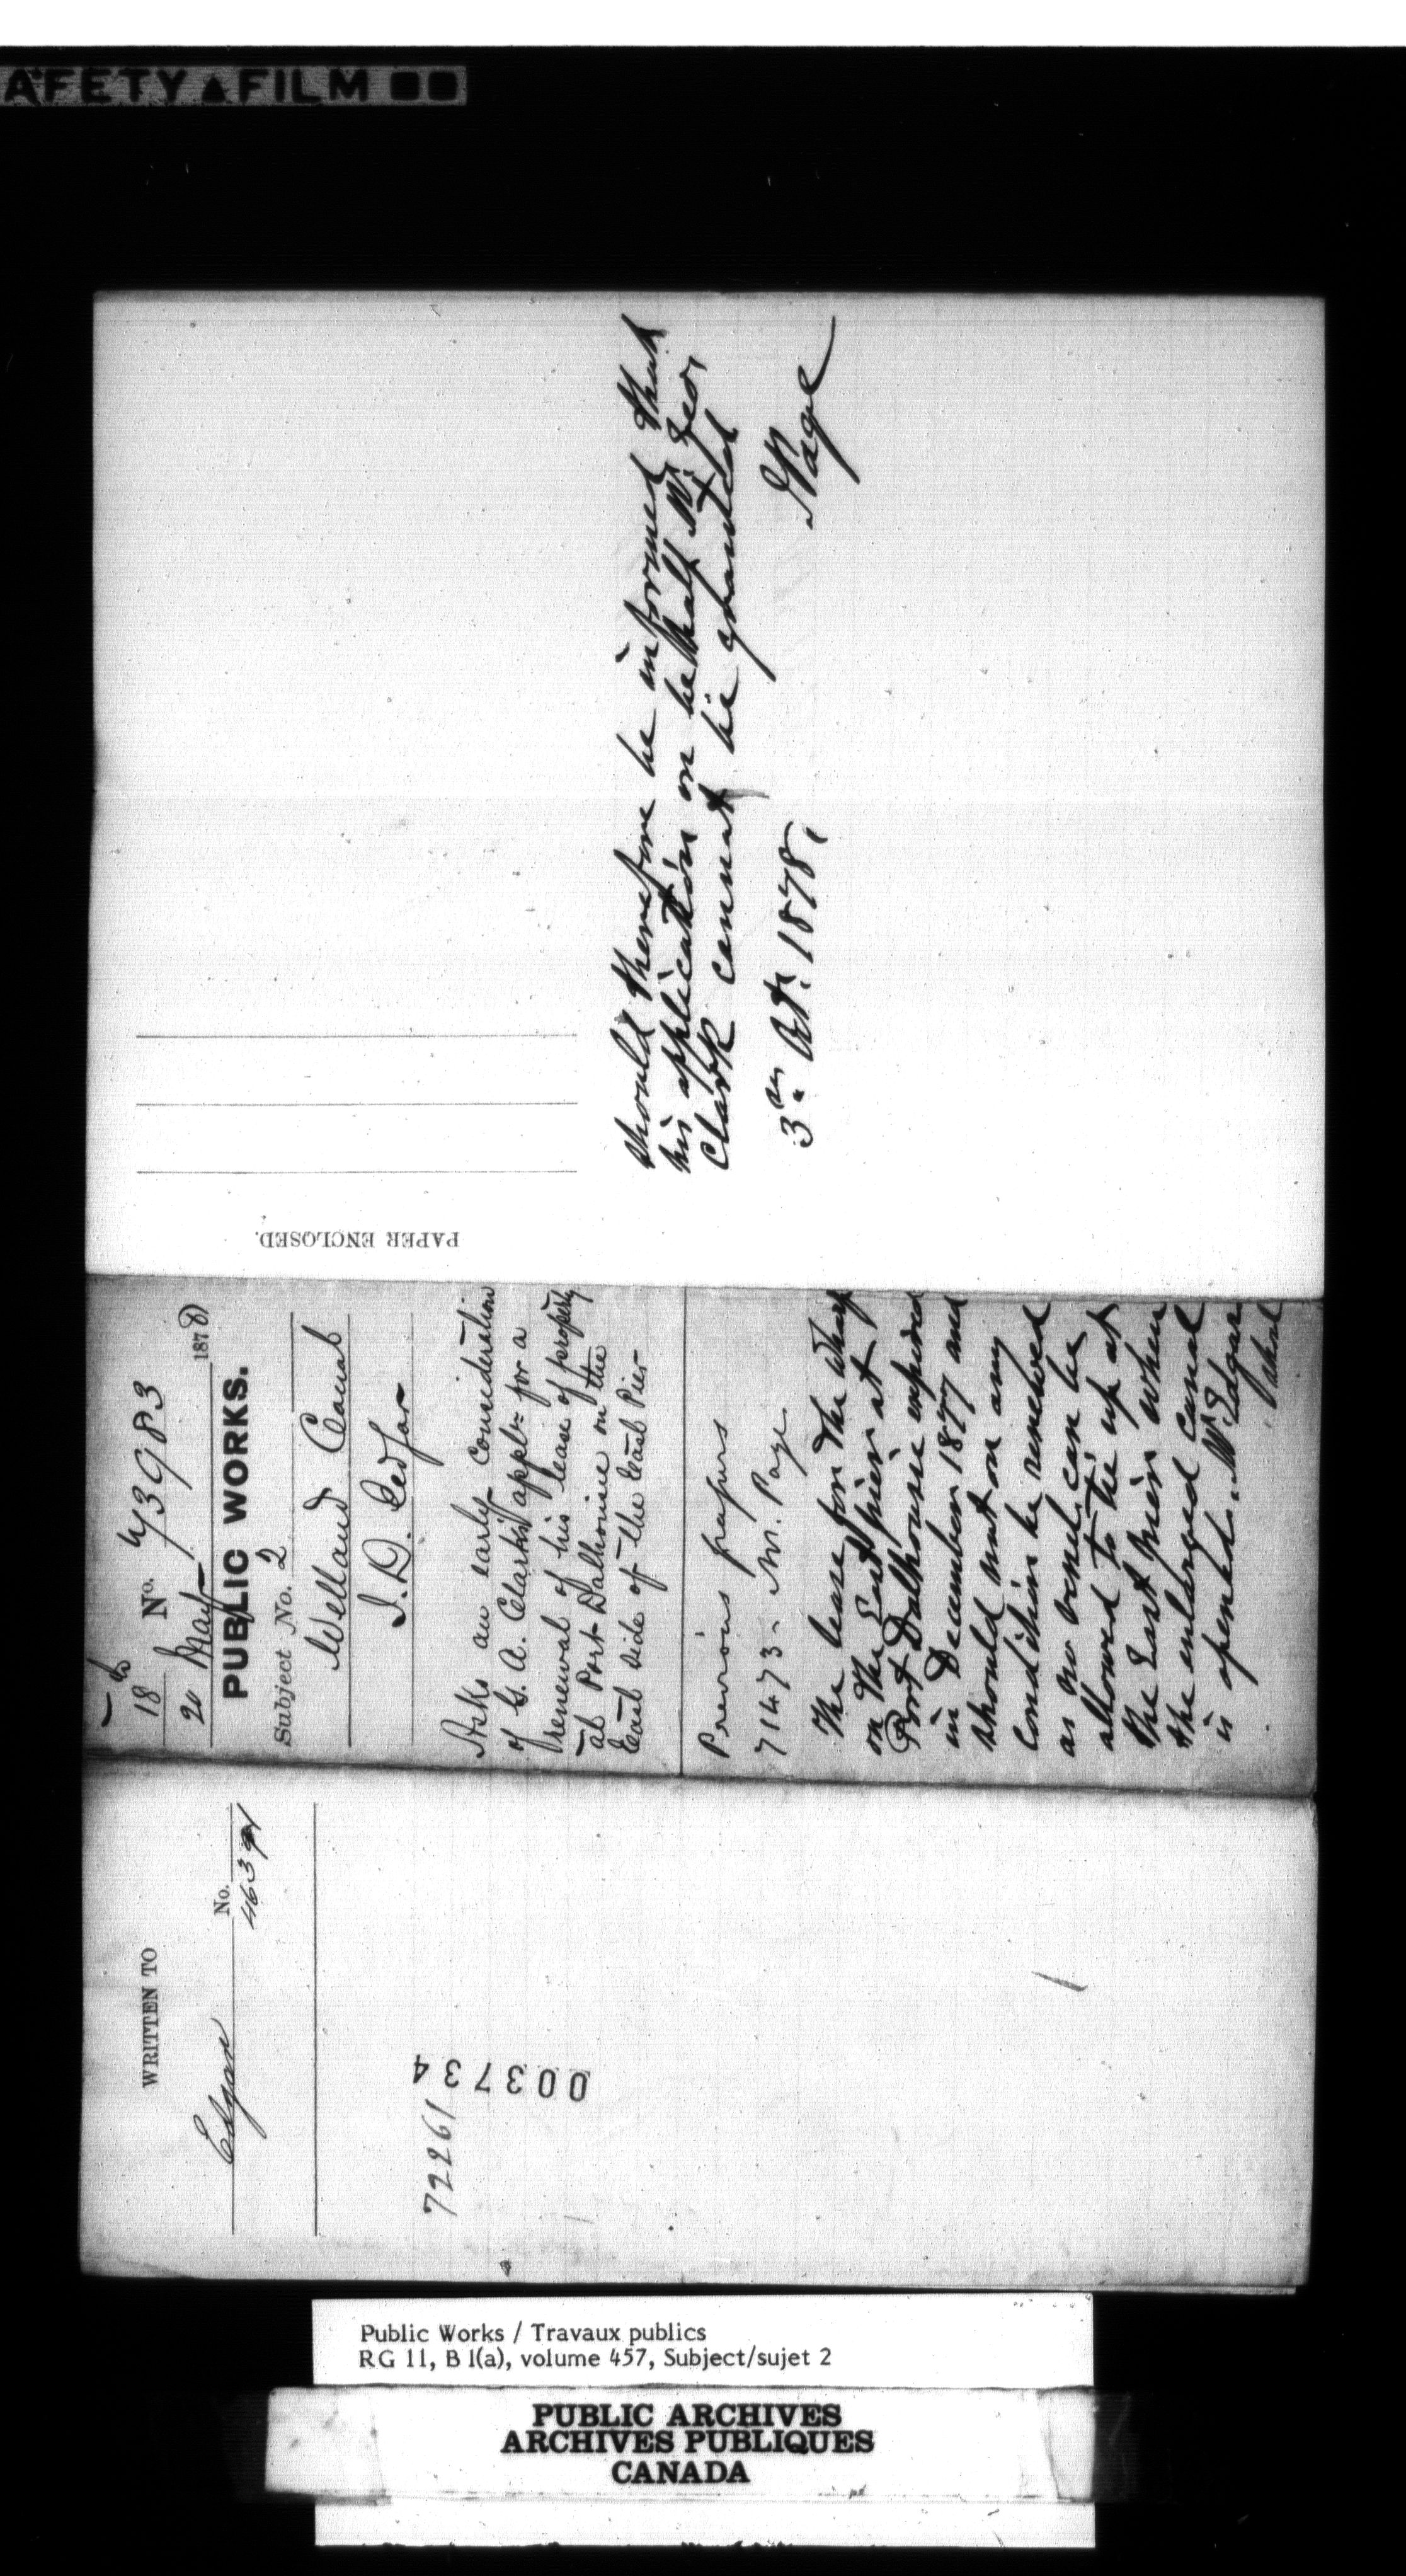 AFETY FILM
18 No. 73983
20 May 1878
PUBLIC WORKS.
Subject No. 2
Welland Canal
J. D. Edgar
Asks an early consideration
of G. A. Clark's appl: for a
renewal of his lease of property
at Port Dalhousie on the
East side of the East Pier
Previous papers
71473. Mr. Page
The lease for the wharf
on the East pier at
Port Dalhousie expired
in December 1877 and
should not on any
condition be renewed
as no vessel can be
allowed to tie up at
the East pier when
the enlarged canal
is opened. Mr Edgar
should therefore be informed that
his application on behalf Mr. Geo,
Clark cannot be granted
3 Oct. 1878, Page
PAPER ENCLOSED.
WRITTEN TO
No.
Edgar
72261
003734
Public Works / Travaux publics
RG 11, B 1(a), volume 457, Subject/sujet 2
PUBLIC ARCHIVES
ARCHIVES PUBLIQUES
CANADA